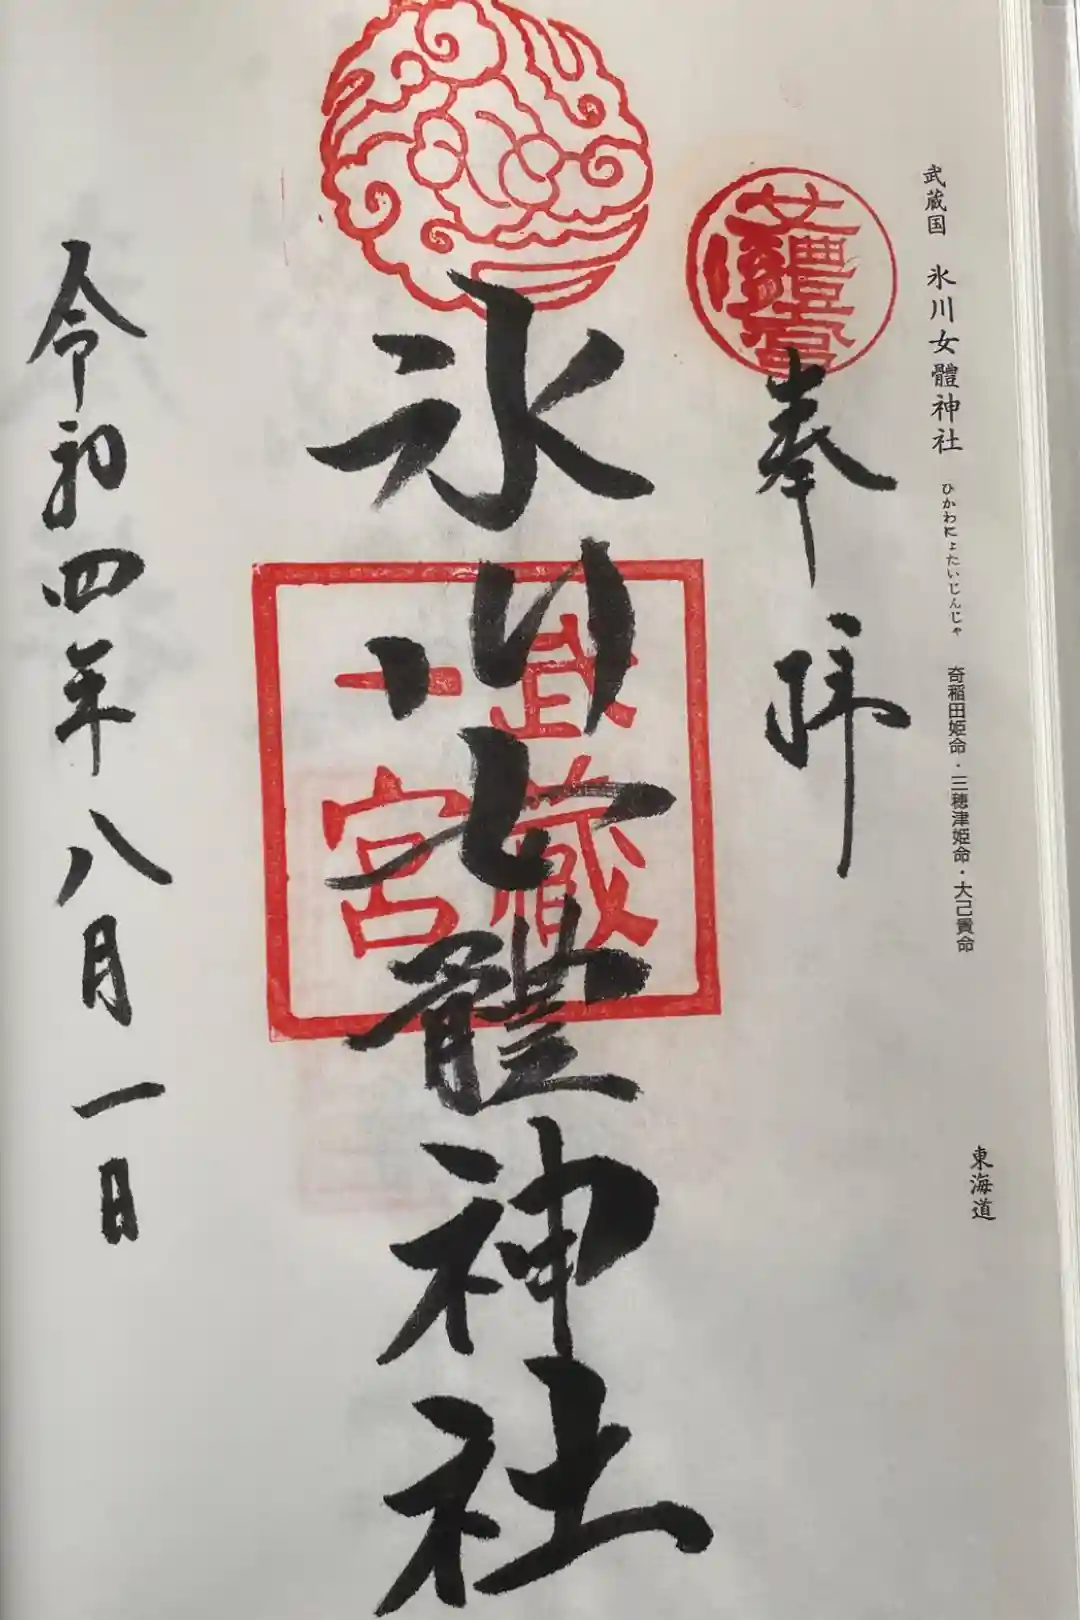 武蔵国 氷川女體神社 ひかわにょたいじんじゃ 奇稲田姫命・三穂津姫命・大己貴命 東海道
奉拝
氷川女體神社
武蔵
一宮
令和四年八月一日